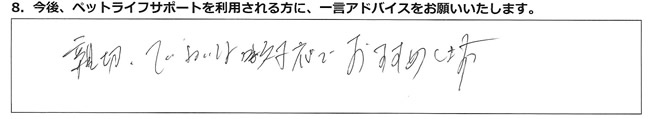 8. 今後、ペットライフサポートを利用される方に、一言アドバイスをお願いいたします。
親切、ていねいな対応でおすすめします